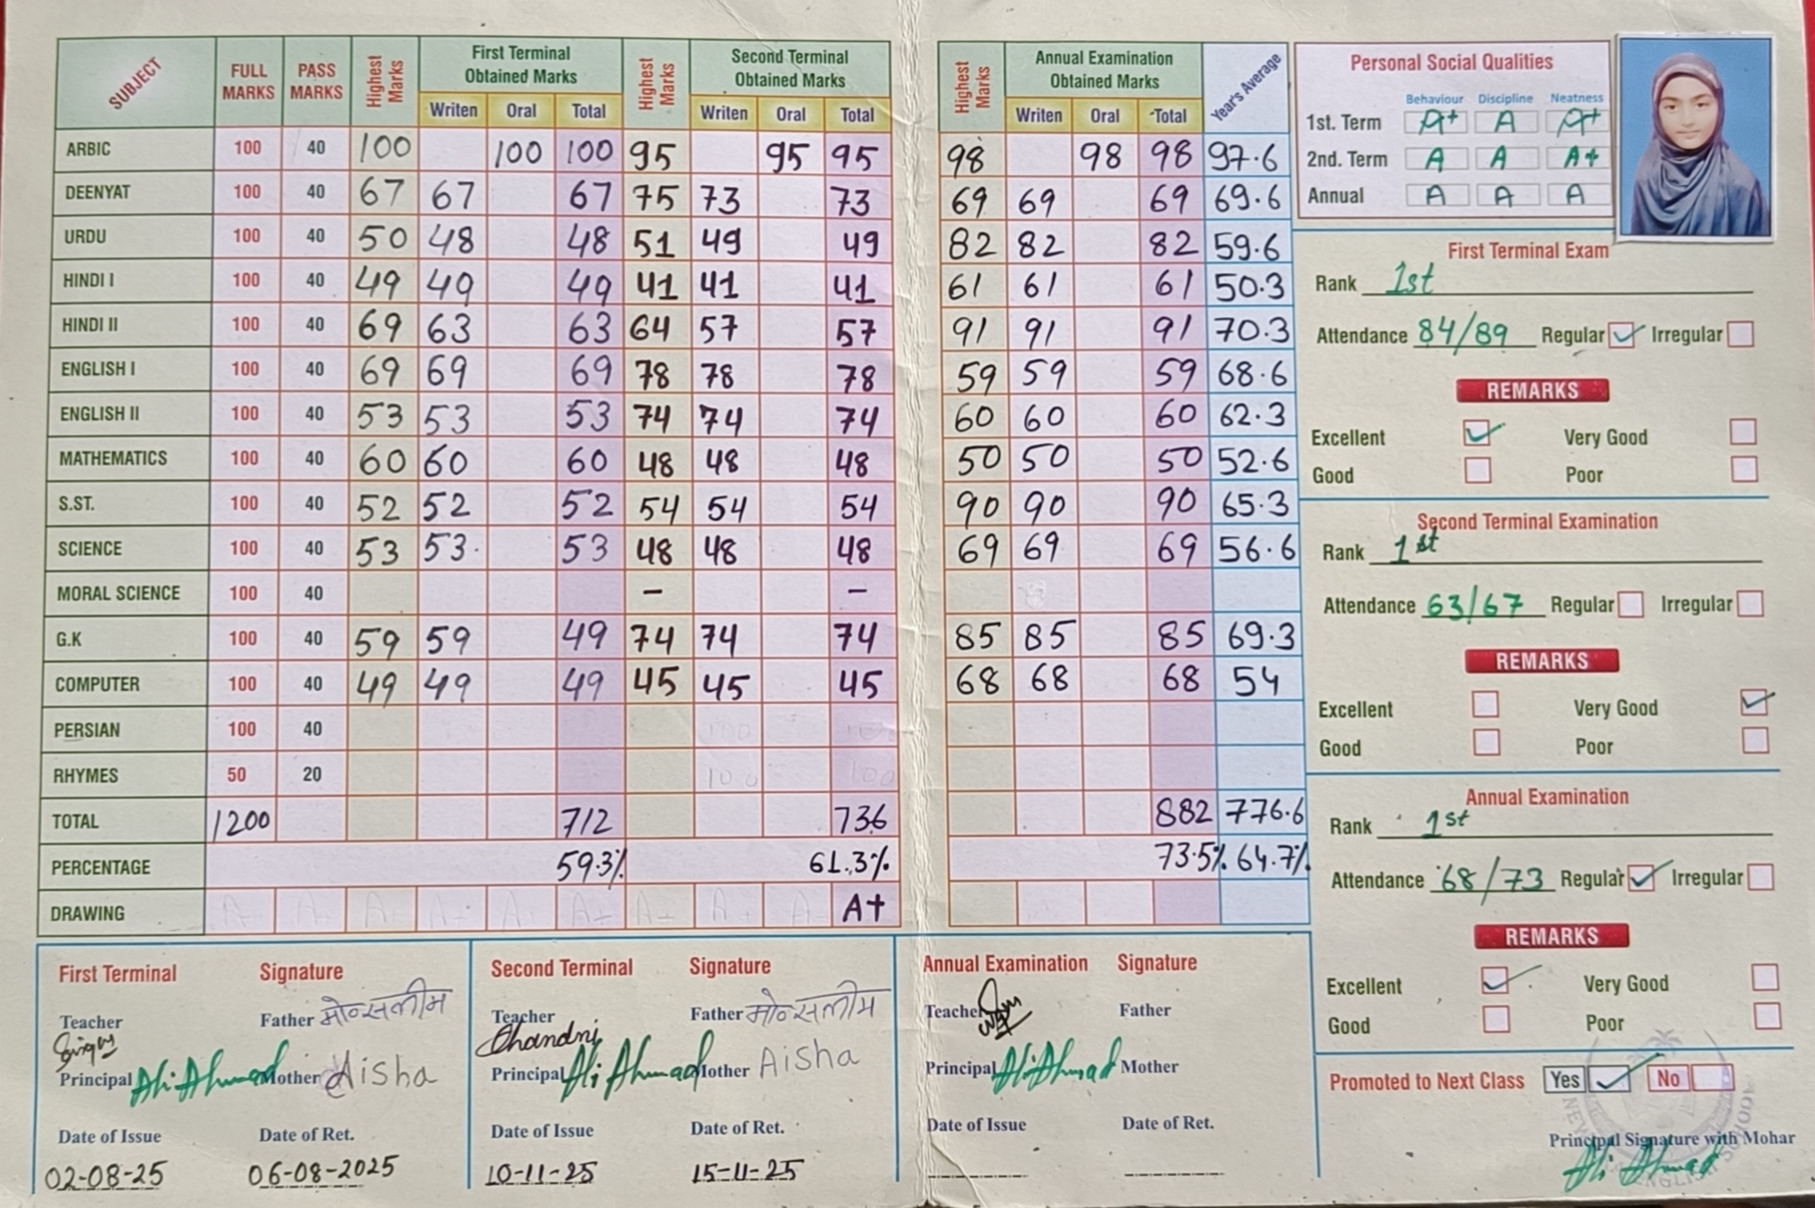 SUBJECT FULL MARKS PASS MARKS Highest Marks First Terminal Obtained Marks Highest Marks Second Terminal Obtained Marks Highest Marks Annual Examination Obtained Marks Year's Average
Writen Oral Total Writen Oral Total Writen Oral Total
ARBIC 100 40 100 100 100 95 95 95 98 98 98 97.6
DEENYAT 100 40 67 67 67 75 73 73 69 69 69 69.6
URDU 100 40 50 48 48 51 49 49 82 82 82 59.6
HINDI I 100 40 49 49 49 41 41 41 61 61 61 50.3
HINDI II 100 40 69 63 63 64 57 57 91 91 91 70.3
ENGLISH I 100 40 69 69 69 78 78 78 59 59 59 68.6
ENGLISH II 100 40 53 53 53 74 74 74 60 60 60 62.3
MATHEMATICS 100 40 60 60 60 48 48 48 50 50 50 52.6
S.ST. 100 40 52 52 52 54 54 54 90 90 90 65.3
SCIENCE 100 40 53 53. 53 48 48 48 69 69 69 56.6
MORAL SCIENCE 100 40 – –
G.K 100 40 59 59 49 74 74 74 85 85 85 69.3
COMPUTER 100 40 49 49 49 45 45 45 68 68 68 54
PERSIAN 100 40
RHYMES 50 20
TOTAL 1200 712 736 882 776.6
PERCENTAGE 59.3% 61.3% 73.5% 64.7%
DRAWING A+
Personal Social Qualities
Behaviour Discipline Neatness
1st. Term A+ A A+
2nd. Term A A A+
Annual A A A
First Terminal Exam
Rank 1st
Attendance 84/89 Regular Irregular
REMARKS
Excellent Very Good
Good Poor
Second Terminal Examination
Rank 1st
Attendance 63/67 Regular Irregular
REMARKS
Excellent Very Good
Good Poor
Annual Examination
Rank 1st
Attendance 68/73 Regular Irregular
REMARKS
Excellent Very Good
Good Poor
Promoted to Next Class Yes No
Principal Signature with Mohar
Ali Ahmad
First Terminal Signature
Teacher Father मो० सलीम
Principal Ali Ahmad Mother Aisha
Date of Issue Date of Ret.
02-08-25 06-08-2025
Second Terminal Signature
Teacher Chandni Father मो० सलीम
Principal Ali Ahmad Mother Aisha
Date of Issue Date of Ret.
10-11-25 15-11-25
Annual Examination Signature
Teacher Father
Principal Ali Ahmad Mother
Date of Issue Date of Ret.